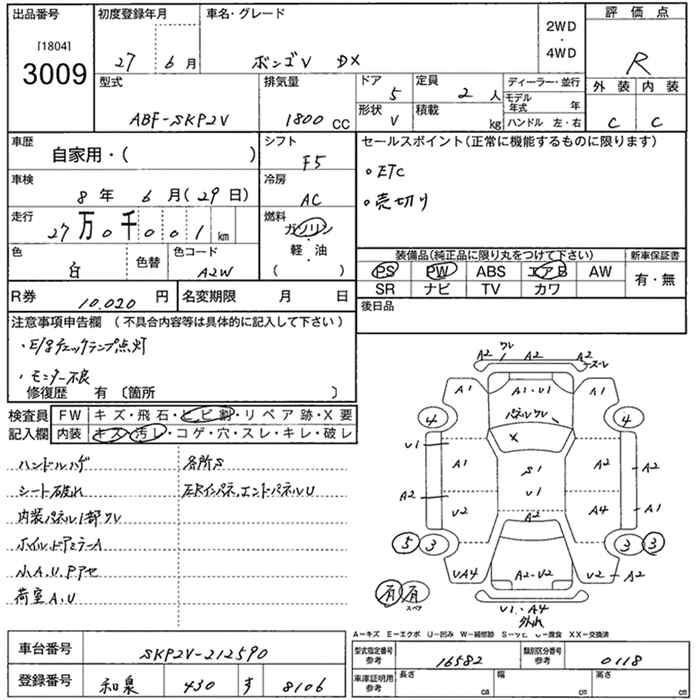 出品番号 [1804] 3009
初度登録年月 27 6 月
車名・グレード ボンゴV DX
2WD・4WD
評価点 R
外装 内装 C C
型式 ABF-SKP2V
排気量 1800 CC
ドア 5
形状 V
定員 2 人
積載 kg
ディーラー・並行
モデル年式 年
ハンドル 左・右
車歴 自家用・( )
シフト F5
車検 8 年 6 月(29 日)
冷房 AC
走行 27 万 0 千 0 0 1 km
燃料 ガソリン・軽・油 ( )
色 白 色替
色コード A2W
R券 10,020 円
名変期限 月 日
セールスポイント(正常に機能するものに限ります)
。ETC
。売切り
装備品(純正品に限り丸をつけて下さい)
PS PW ABS エアB AW
SR ナビ TV カワ
新車保証書 有・無
後日品
注意事項申告欄 (不具合内容等は具体的に記入して下さい)
・E/gチェックランプ点灯
・モニター不良
修復歴 有 〔箇所 〕
検査員記入欄
FW キズ・飛石・ヒビ割・リペア跡・X要
内装 キズ・汚レ・コゲ・穴・スレ・キレ・破レ
ハンドルハゲ 各所S
シート破れ 左Rインパネ,エンドパネルU
内装パネル1部ワレ
ホイル,ドアミラーA
小A.U.Pアセ
荷室A.U
A2 ワレ A2 A2 スレ
A1 A1・U1 A1
パネルワレ
4 4
X
U1 A1 S1 A2
A2 U1 A1
U2 A2 A4
5 3 3 3
UA4 A2・U2 U2 A2
有 有 スペア
U1・A4
外れ
A-キズ E-エクボ U-凹み W-補修跡 S-サビ C-腐食 XX-交換済
車台番号 SKP2V-212590
登録番号 和泉 430 す 8106
型式指定番号 参考 16582
類別区分番号 参考 0118
車庫証明用 参考 長さ cm 幅 cm 高さ cm